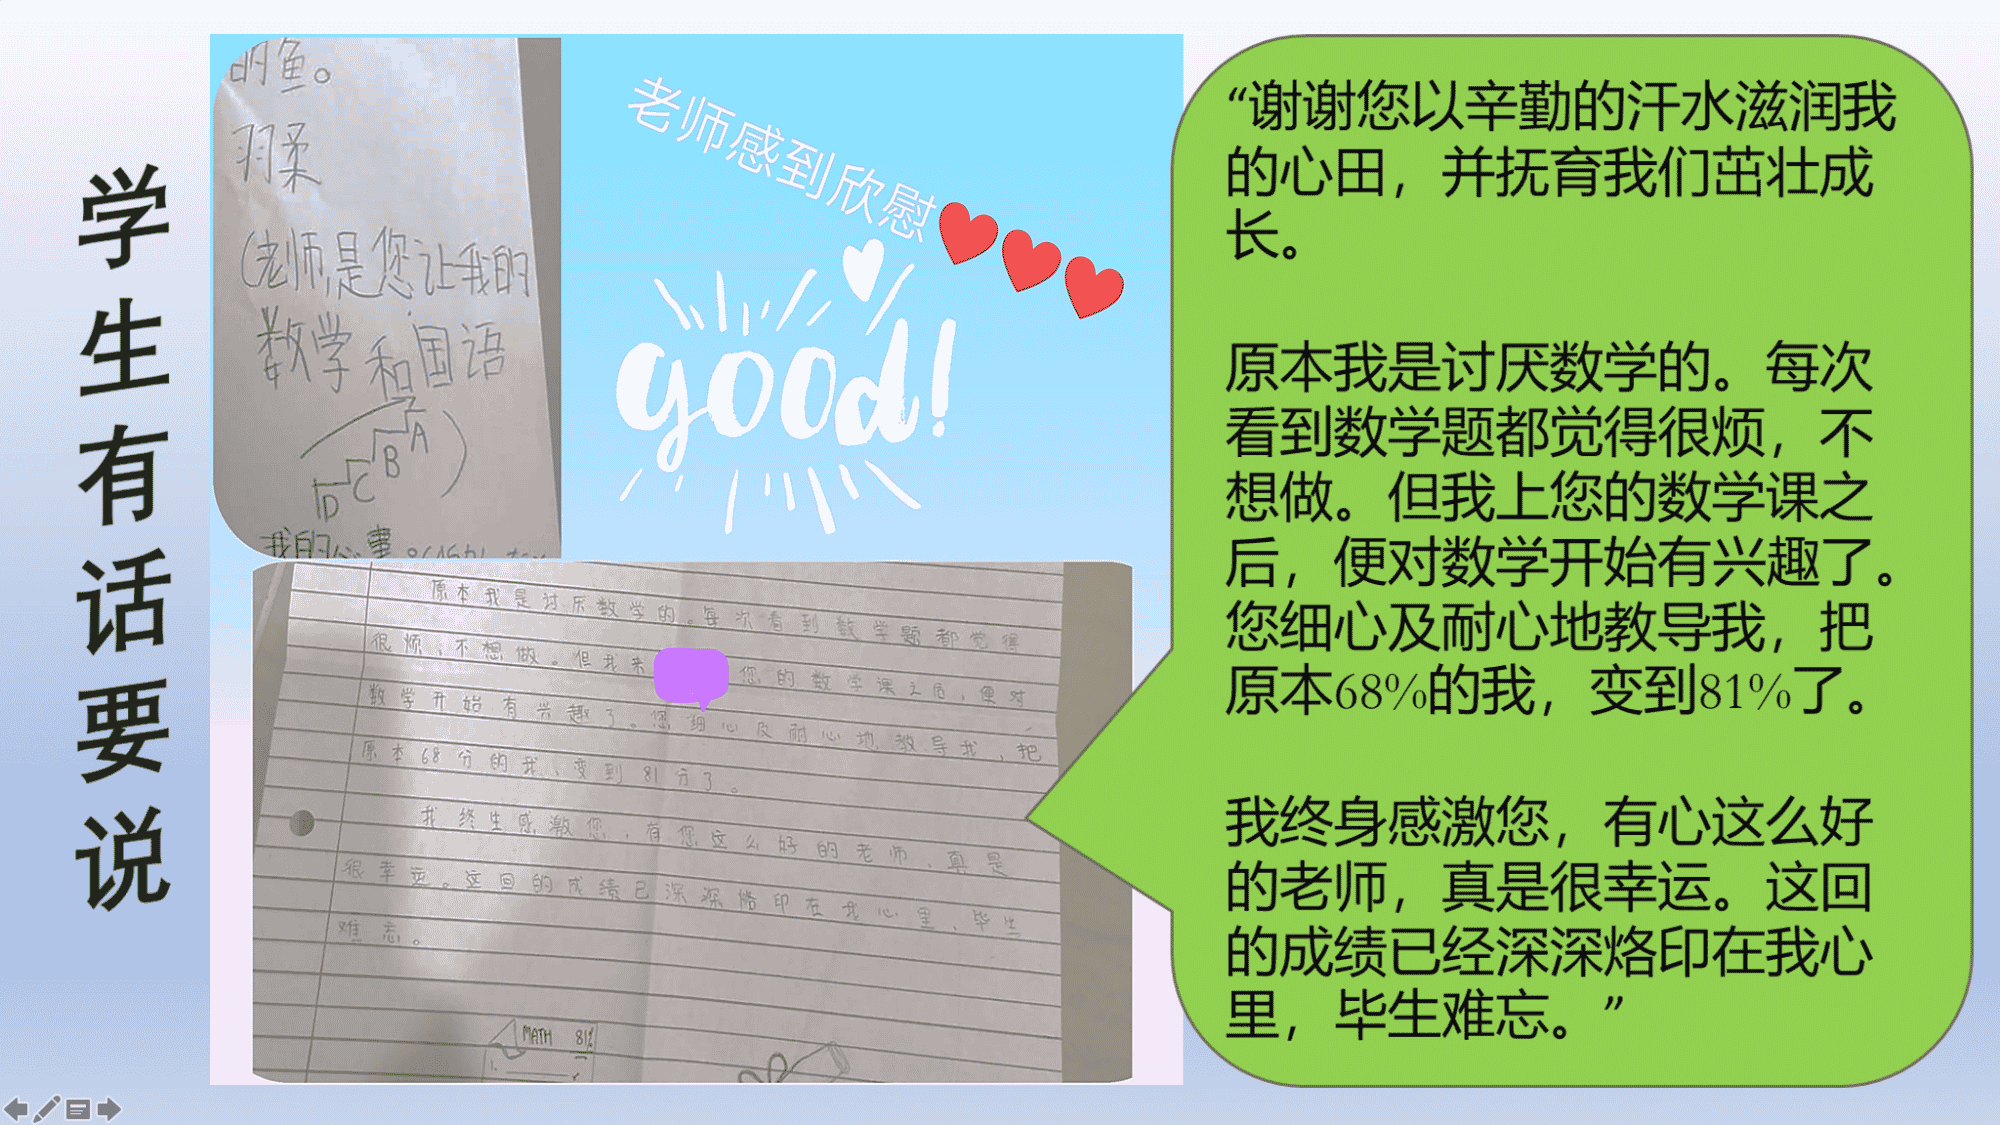 学生有话要说
的鱼。
羽柔
(老师,是您让我的
数学和国语
A
B
C
D
)
我的心事
老师感到欣慰
good!
原本我是讨厌数学的。每次看到数学题都觉得
很烦，不想做。但我来 您的数学课之后，便对
数学开始有兴趣了。您细心及耐心地教导我，把
原本68分的我，变到81分了。
我终生感激您，有您这么好的老师，真是
很幸运。这回的成绩已深深烙印在我心里，毕生
难忘。
MATH 81%
“谢谢您以辛勤的汗水滋润我
的心田，并抚育我们茁壮成
长。
原本我是讨厌数学的。每次
看到数学题都觉得很烦，不
想做。但我上您的数学课之
后，便对数学开始有兴趣了。
您细心及耐心地教导我，把
原本68%的我，变到81%了。
我终身感激您，有心这么好
的老师，真是很幸运。这回
的成绩已经深深烙印在我心
里，毕生难忘。”